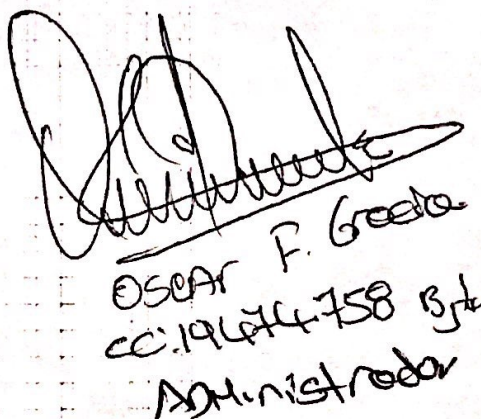 OSCAR F.
CC: 19.474.758 Bgta
ADMinistrador